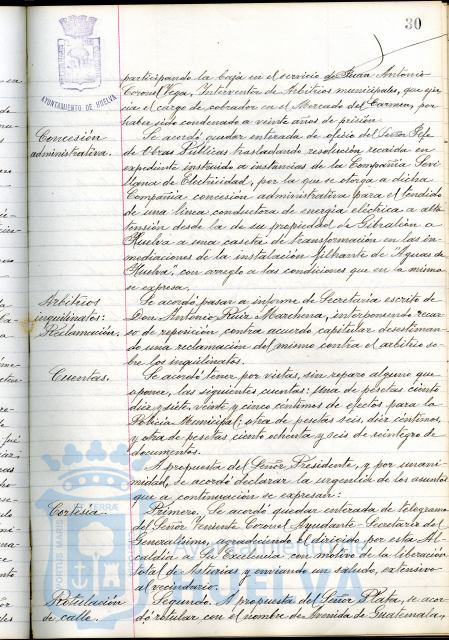 30
AYUNTAMIENTO DE HUELVA
participando la baja en el servicio de Juan Antonio
Coronel Vega, Interventor de Arbitrios municipales, que ejer
cía el cargo de cobrador en el Mercado del Carmen, por
haber sido condenado a veinte años de prisión.
Concesión
administrativa.
Se acordó quedar enterada de oficio del Señor Jefe
de Obras Públicas trasladando resolución recaida en
expediente instruido a instancias de la Compañía Sevi
llana de Electricidad, por la que se otorga a dicha
Compañía concesión administrativa para el tendido
de una línea conductora de energía eléctrica a alta
tensión desde la de su propiedad de Gibraleón a
Huelva a una caseta de transformación en las in
mediaciones de la instalación filtrante de "Aguas de
Huelva", con arreglo a las condiciones que en la misma
se expresa.
Arbitrios
inquilinatos:
Reclamación.
Se acordó pasar a informe de Secretaría escrito de
Don Antonio Ruiz Marchena, interponiendo recur
so de reposición contra acuerdo capitular desestiman
do una reclamación del mismo contra el arbitrio so
bre los inquilinatos.
Cuentas.
Se acordó tener por vistas, sin reparo alguno que
oponer, las siguientes cuentas: Una de pesetas ciento
diez y siete, veinte y cinco céntimos de efectos para la
Policía Municipal; otra de pesetas seis, diez céntimos,
y otra de pesetas ciento ochenta y seis de reintegro de
documentos.
A propuesta del Señor Presidente, y por unani
midad, se acordó declarar la urgencia de los asuntos
que a continuación se expresan:
Cortesía.
Primero. Se acordó quedar enterada de telegrama
del Señor Teniente Coronel Ayudante-Secretario del
Generalísimo, agradeciendo el dirigido por esta Al
caldía a Su Excelencia con motivo de la liberación
total de Asturias y enviando un saludo, extensivo
al vecindario.
Rotulación
de calle.
Segundo. A propuesta del Señor Plata, se acor
dó rotular con el nombre de Avenida de Guatemala,
HUELVA